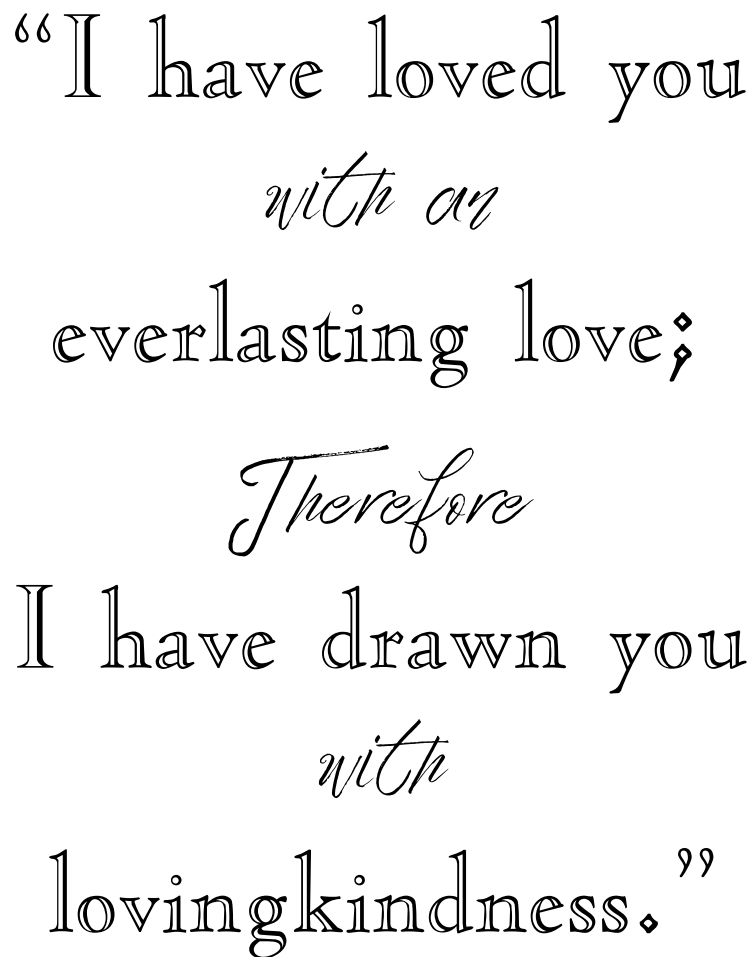 “I have loved you
with an
everlasting love;
Therefore
I have drawn you
with
lovingkindness.”